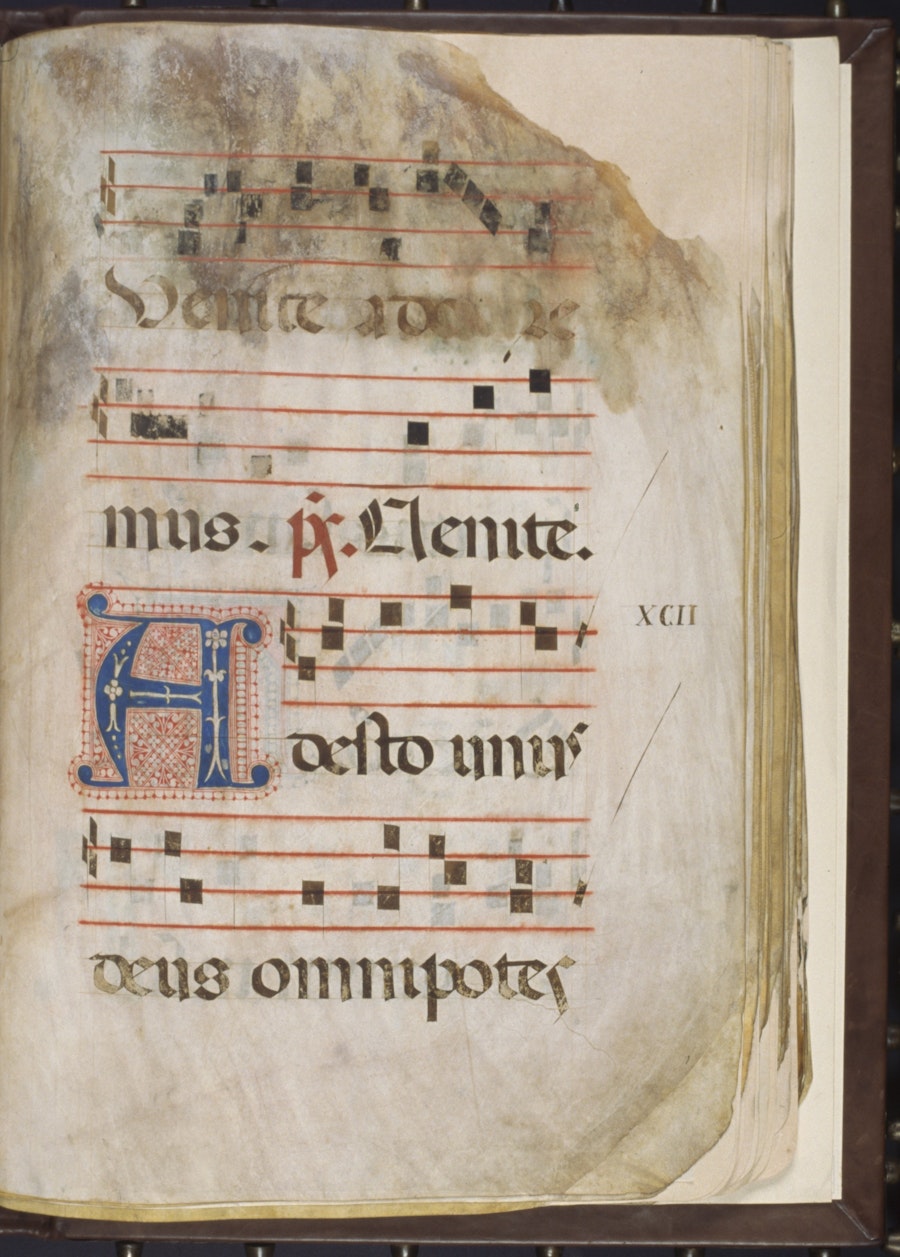 Venite adore
mus. ps. Venite.
XCII
Adesto unus
deus omnipotes